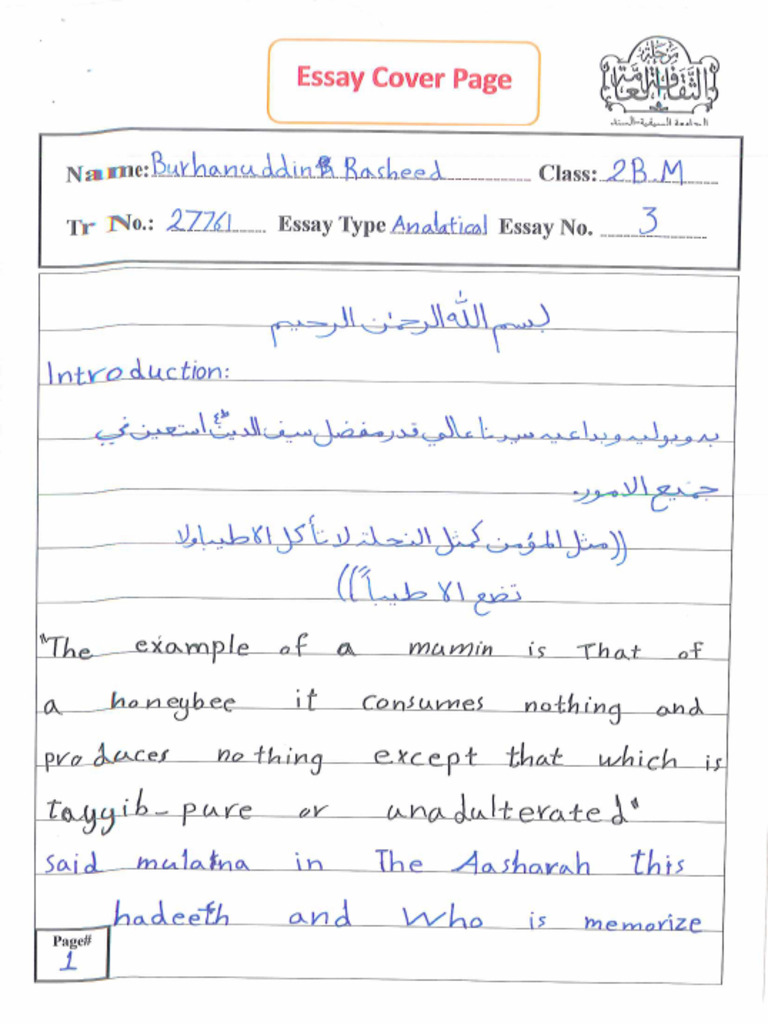 Essay Cover Page
مرحلة الثقافة العامة
Name: Burhanuddin Rasheed Class: 2B.M
Tr No.: 27761 Essay Type Analatical Essay No. 3
بسم الله الرحمٰن الرحيم
Introduction:
به وبوليه وبداعيه سيدنا عالي قدر مفضل سيف الدين استعين في
جميع الامور.
((مثل المؤمن كمثل النحلة لا تأكل الا طيبا ولا
تضع الا طيباً))
"The example of a mumin is That of
a honeybee it consumes nothing and
produces nothing except that which is
tayyib- pure or unadulterated"
said mulatna in The Aasharah this
hadeeth and who is memorize
Page#
1